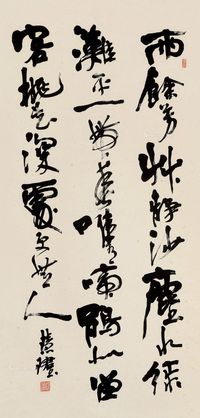 雨餘芳艸淨沙塵水綠
灘平一帶春唯有啼鵑似留
客桃花深處更無人